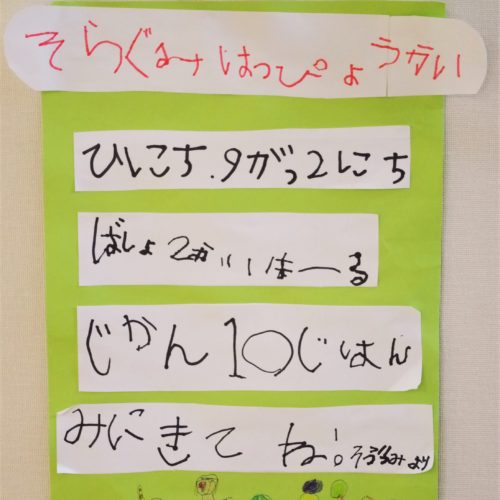 そらぐみはっぴょうかい
ひにち.9がつ2にち
ばしょ2かいほーる
じかん10じはん
みにきてね!そらぐみより